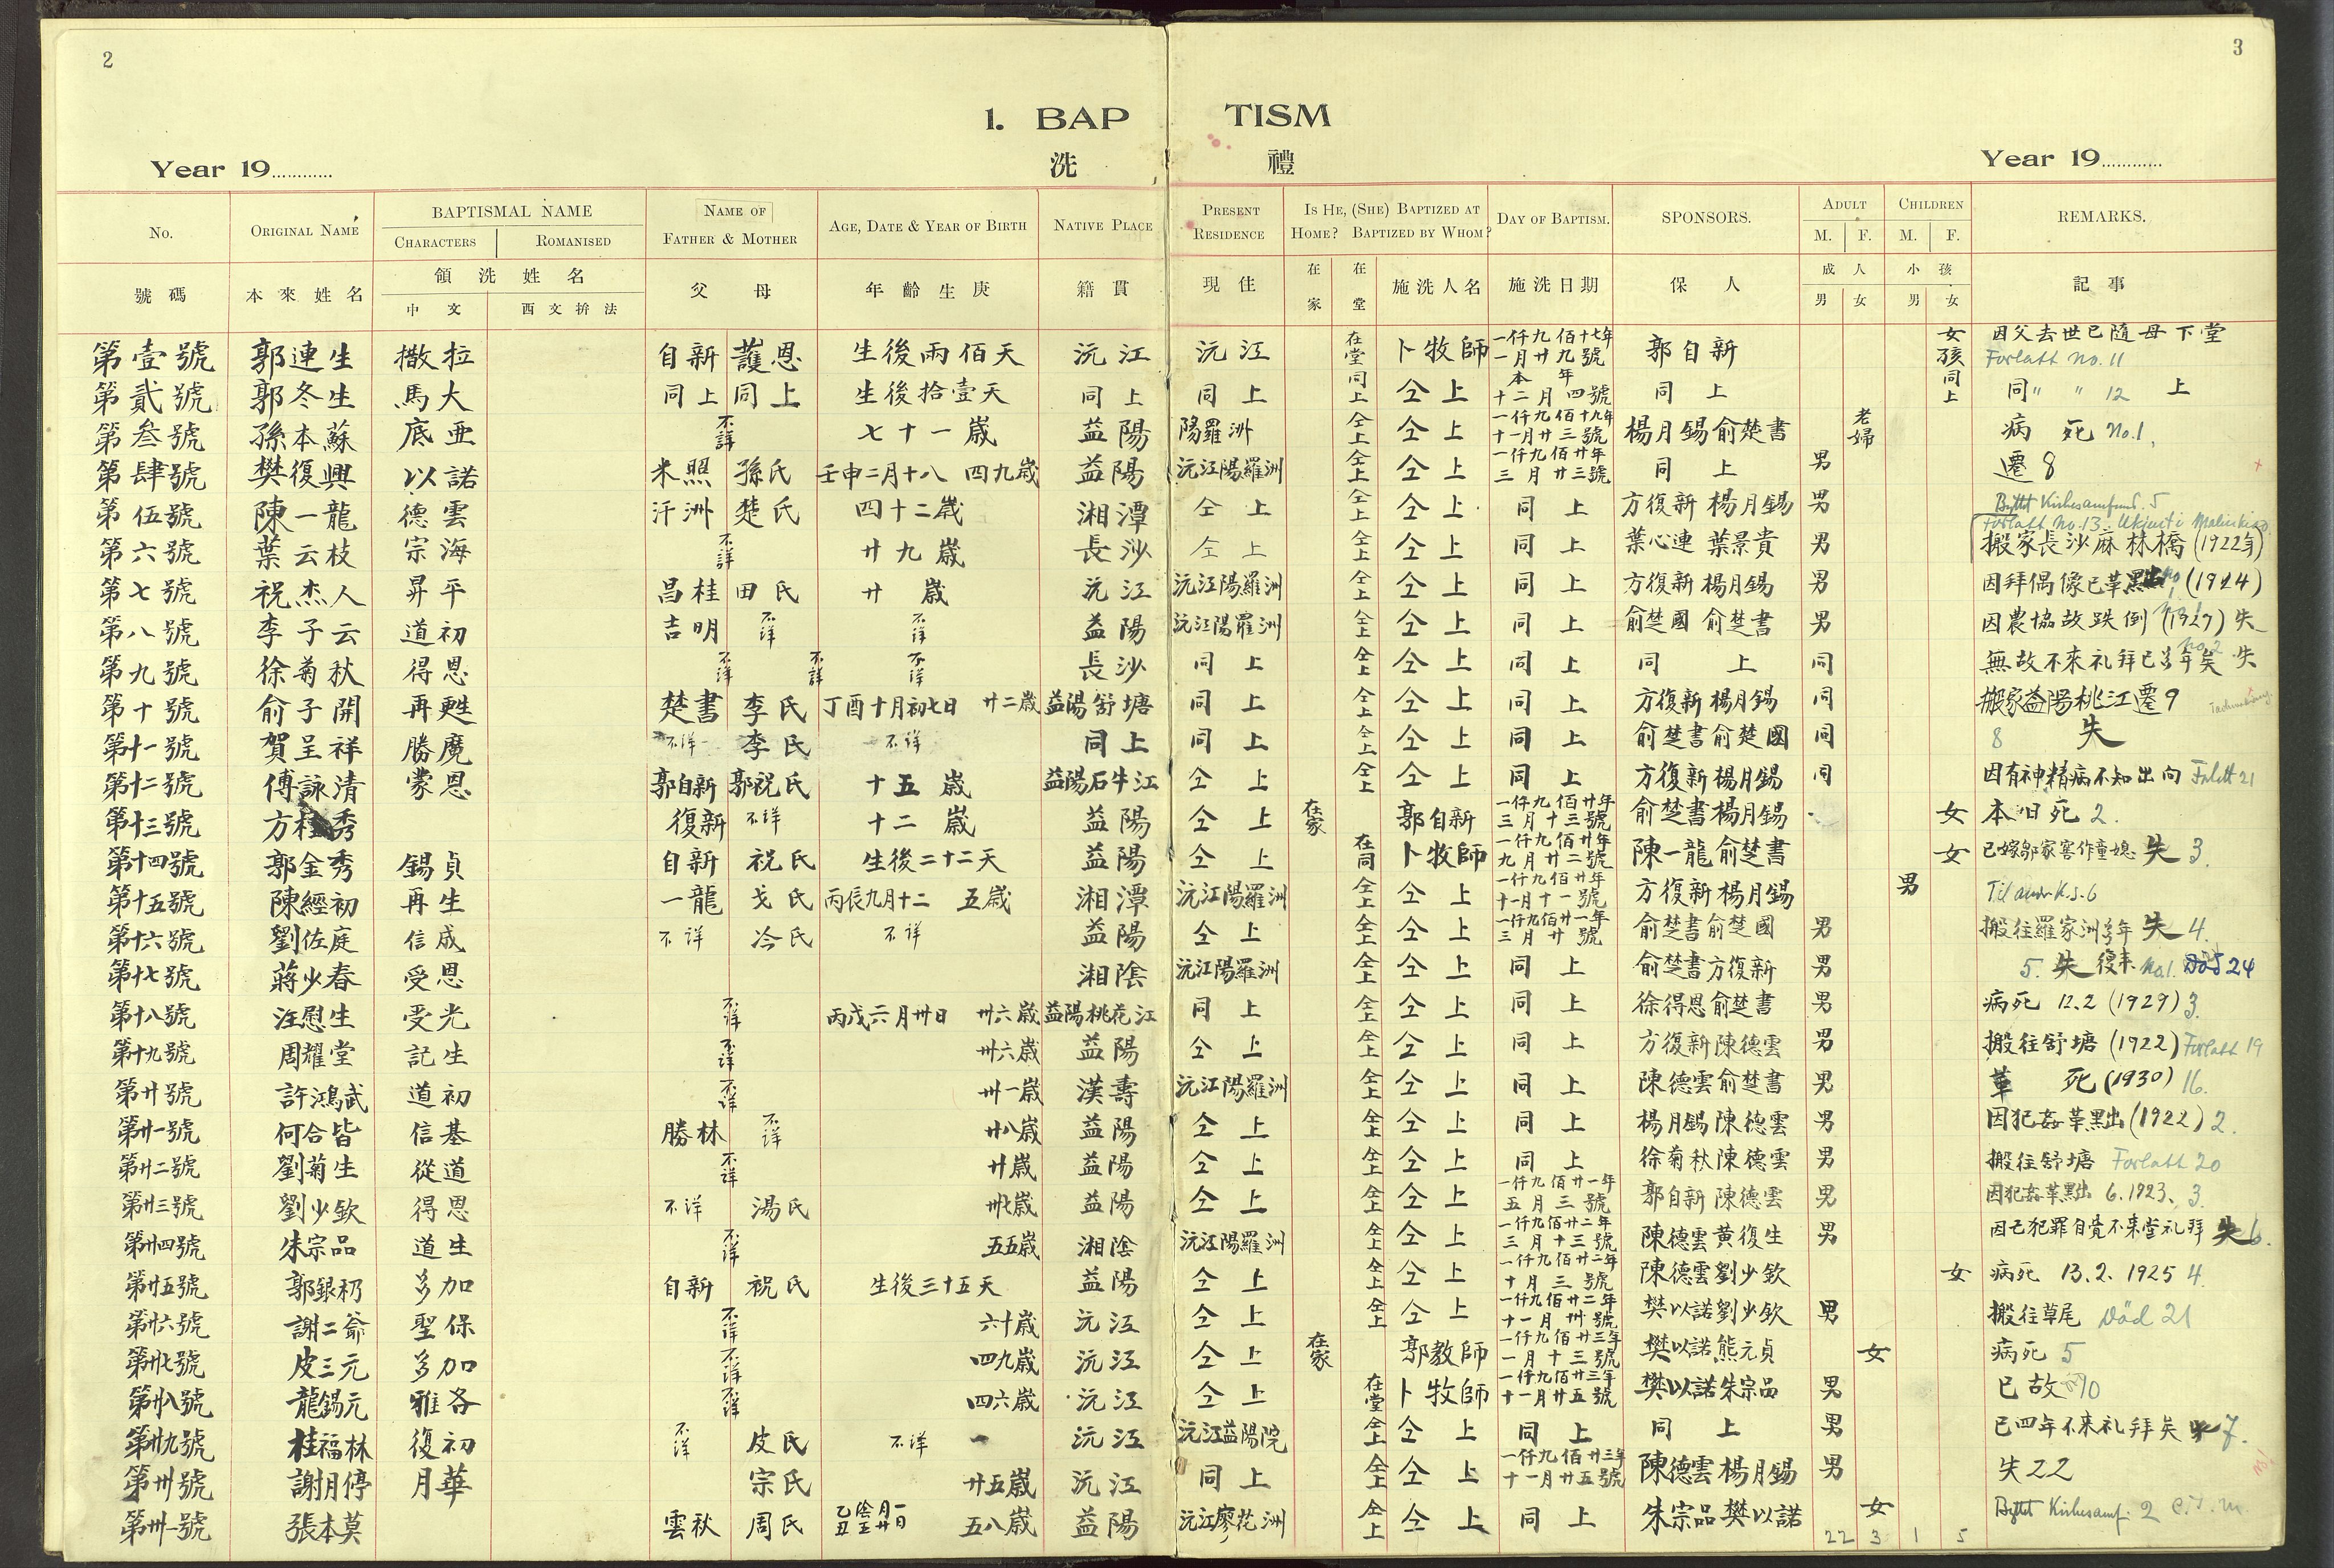 2
3
1. BAP TISM
Year 19............ 洗 禮 Year 19............
No. ORIGINAL NAME BAPTISMAL NAME CHARACTERS ROMANISED NAME OF FATHER & MOTHER AGE, DATE & YEAR OF BIRTH NATIVE PLACE PRESENT RESIDENCE IS HE, (SHE) BAPTIZED AT HOME? BAPTIZED BY WHOM? DAY OF BAPTISM. SPONSORS. ADULT M. F. CHILDREN M. F. REMARKS.
號碼 本來姓名 領洗姓名 中文 西文拚法 父母 年齡生庚 籍貫 現住 在家 在堂 施洗人名 施洗日期 保人 成人 男 女 小孩 男 女 記事
第壹號 郭連生 撒拉 自新 護恩 生後兩佰天 沅江 沅江 在堂 卜牧師 一仟九佰十七年一月廿九號 郭自新 女孩 因父去世已隨母下堂 Forlatt no. 11
第貳號 郭冬生 馬大 同上 同上 生後拾壹天 同上 同上 同上 仝上 本年十二月四號 同上 同上 同 " " 12 上
第叁號 孫本蘇 底亜 不詳 七十一歲 益陽 陽羅洲 仝上 仝上 一仟九佰十九年十一月廿三號 楊月錫俞楚書 老婦 病死 no.1,
第肆號 樊復興 以諾 米照 孫氏 壬申二月十八 四九歲 益陽 沅江陽羅洲 仝上 仝上 一仟九佰廿年三月廿三號 同上 男 遷 8
第伍號 陳一龍 德雲 汗洲 楚氏 四十二歲 湘潭 仝上 仝上 仝上 同上 方復新 楊月錫 男 Byttet Kirkesamfund. 5
第六號 葉云枝 宗海 不詳 廿九歲 長沙 仝上 仝上 仝上 同上 葉心連 葉景貴 男 Forlatt no. 13. 搬家長沙麻林橋 (1922年)
第七號 祝杰人 昇平 昌桂 田氏 廿歲 沅江 沅江陽羅洲 仝上 仝上 同上 方復新 楊月錫 男 因拜偶像已革黜 (1924)
第八號 李子云 道初 吉明 不詳 不詳 益陽 沅江陽羅洲 仝上 仝上 同上 俞楚國 俞楚書 男 因農協故跌倒 (1927) 失
第九號 徐菊秋 得恩 不詳 不詳 不詳 長沙 同上 仝上 仝上 同上 同上 同 無故不來礼拜已多年矣 失
第十號 俞子開 再甦 楚書 李氏 丁酉十月初七日 廿二歲 益陽舒塘 同上 仝上 仝上 同上 方復新 楊月錫 同 搬家益陽桃江遷 9
第十一號 賀呈祥 勝魔 不詳 李氏 不詳 同上 同上 仝上 仝上 同上 俞楚書俞楚國 同 8 失
第十二號 傅詠清 蒙恩 郭自新 郭祝氏 十五歲 益陽石牛江 仝上 仝上 仝上 同上 方復新楊月錫 同 因有神精病不知出向 Forlatt 21
第十三號 方桂秀 復新 不詳 十二歲 益陽 仝上 在家 郭自新 一仟九佰廿年三月十三號 俞楚書楊月錫 女 本日死 2.
第十四號 郭金秀 錫貞 自新 祝氏 生後二十二天 益陽 仝上 在同 卜牧師 一仟九佰廿年九月廿二號 陳一龍 俞楚書 女 已嫁鄒家害作童媳 失 3.
第十五號 陳經初 再生 一龍 戈氏 丙辰九月十二 五歲 湘潭 沅江陽羅洲 仝上 仝上 一仟九佰廿年十一月十一號 方復新楊月錫 男 Til andre K.s. 6
第十六號 劉佐庭 信成 不詳 冷氏 不詳 益陽 仝上 仝上 仝上 一仟九佰廿一年三月廿號 俞楚書俞楚國 男 搬往羅家洲多年 失 4.
第十七號 蔣少春 受恩 湘陰 沅江陽羅洲 仝上 仝上 同上 俞楚書方復新 男 5. 失 復来 no.1. Död 24
第十八號 汪慰生 受光 不詳 丙戌六月卅日 卅六歲 益陽桃花江 同上 仝上 仝上 同上 徐得恩俞楚書 男 病死 12.2 (1929) 3.
第十九號 周耀堂 記生 不詳 卅六歲 益陽 仝上 仝上 仝上 同上 方復新陳德雲 男 搬往舒塘 (1922) Forlatt 19
第廿號 許鴻武 道初 不詳 卅一歲 漢壽 沅江陽羅洲 仝上 仝上 同上 陳德雲俞楚書 男 革 死 (1930) 16.
第廿一號 何合皆 信基 勝林 不詳 廿八歲 益陽 仝上 仝上 仝上 同上 楊月錫陳德雲 男 因犯姦革黜出 (1922) 2.
第廿二號 劉菊生 從道 不詳 廿歲 益陽 仝上 仝上 仝上 同上 徐菊秋陳德雲 男 搬往舒塘 Forlatt 20
第廿三號 劉少欽 得恩 不詳 湯氏 卅七歲 益陽 仝上 仝上 仝上 一仟九佰廿一年五月三號 郭自新 陳德雲 男 因犯姦革黜出 6.1923. 3.
第廿四號 朱宗品 道生 不詳 五五歲 湘陰 沅江陽羅洲 仝上 仝上 一仟九佰廿二年三月十三號 陳德雲黃復生 男 因己犯罪自覺不来堂礼拜 失 6.
第廿五號 郭銀礽 多加 自新 祝氏 生後三十五天 益陽 仝上 仝上 仝上 一仟九佰廿二年十月三號 陳德雲劉少欽 女 病死 13.2.1925 4.
第廿六號 謝二爺 聖保 不詳 六十歲 沅江 仝上 仝上 仝上 一仟九佰廿二年十一月卅號 樊以諾劉少欽 男 搬往草尾 Död 21
第廿七號 皮三元 多加 不詳 四九歲 沅江 仝上 在家 郭教師 一仟九佰廿三年一月十三號 樊以諾熊元貞 女 病死 5
第廿八號 龍錫元 雅各 不詳 四六歲 沅江 仝上 在堂 卜牧師 一仟九佰廿三年十一月廿五號 樊以諾朱宗品 男 已故 10
第廿九號 桂福林 復初 不詳 皮氏 不詳 沅江 沅江益陽院 仝上 仝上 同上 同上 男 已四年不来礼拜矣 失 7.
第卅號 謝月停 月華 宗氏 廿五歲 沅江 同上 仝上 仝上 一仟九佰廿三年十一月廿五號 陳德雲楊月錫 男 失 22
第卅一號 張本莫 雲秋 周氏 五八歲 益陽 沅江廖花洲 仝上 仝上 同上 朱宗品樊以諾 女 Byttet Kirkesamf. 2
22 3 1 5